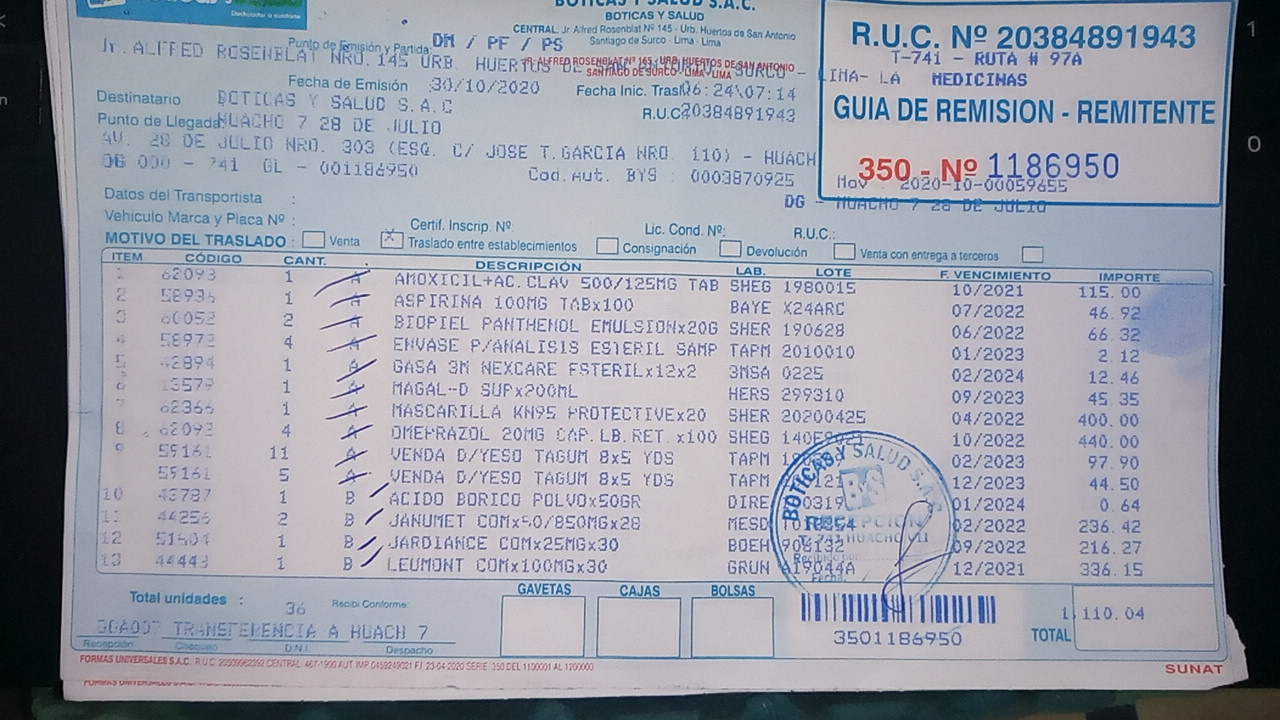 BOTICAS Y SALUD S.A.C.
BOTICAS Y SALUD
CENTRAL: Jr. Alfred Rosenblat Nº 145 - Urb. Huertos de San Antonio
Santiago de Surco - Lima - Lima
R.U.C. Nº 20384891943
T-741 - RUTA # 97A
MEDICINAS
GUIA DE REMISION - REMITENTE
350 - Nº 1186950
Mov : 2020-10-00059655
DG - HUACHO 7 28 DE JULIO
Punto de Emisión y Partida: DM / PF / PS
Jr. ALFRED ROSENBLAT NRO. 145 URB. HUERTOS DE SURCO - LIMA- LA
JR. ALFRED ROSENBLAT Nº 165 - URB. HUERTOS DE SAN ANTONIO
SANTIAGO DE SURCO-LIMA-LIMA
Fecha de Emisión :30/10/2020 Fecha Inic. Trasl 06:24\07:14
Destinatario BOTICAS Y SALUD S.A.C R.U.C. 20384891943
Punto de Llegada: HUACHO 7 28 DE JULIO
AV. 28 DE JULIO NRO. 303 (ESQ. C/ JOSE T.GARCIA NRO. 110) - HUACH
DG 000 - 741 GL - 001186950 Cod.Aut. BYS : 0003870925
Datos del Transportista :
Vehiculo Marca y Placa Nº : Certif. Inscrip. Nº: Lic. Cond. Nº: R.U.C.:
MOTIVO DEL TRASLADO : Venta X Traslado entre establecimientos Consignación Devolución Venta con entrega a terceros
ITEM CÓDIGO CANT. DESCRIPCIÓN LAB. LOTE F. VENCIMIENTO IMPORTE
1 62093 1 A AMOXICIL+AC.CLAV 500/125MG TAB SHEG 1980015 10/2021 115.00
2 58935 1 A ASPIRINA 100MG TABx100 BAYE X24ARC 07/2022 46.92
3 60052 2 A BIOPIEL PANTHENOL EMULSIONx20G SHER 190628 06/2022 66.32
4 58973 4 A ENVASE P/ANALISIS ESTERIL SAMP TAPM 2010010 01/2023 2.12
5 42894 1 A GASA 3M NEXCARE ESTERILx12x2 3MSA 0225 02/2024 12.46
6 13579 1 A MAGAL-D SUPx200ML HERS 299310 09/2023 45.35
7 62366 1 A MASCARILLA KN95 PROTECTIVEx20 SHER 20200425 04/2022 400.00
8 62092 4 A OMEPRAZOL 20MG CAP.LB.RET.x100 SHEG 10/2022 440.00
9 59161 11 A VENDA D/YESO TAGUM 8x5 YDS TAPM 02/2023 97.90
59161 5 A VENDA D/YESO TAGUM 8x5 YDS TAPM 12/2023 44.50
10 43787 1 B ACIDO BORICO POLVOx50GR DIRE 01/2024 0.64
11 44256 2 B JANUMET COMx50/850MGx28 MESD 02/2022 236.42
12 51504 1 B JARDIANCE COMx25MGx30 BOEH 908132 09/2022 216.27
13 44443 1 B LEUMONT COMx100MGx30 GRUN A19044A 12/2021 336.15
BOTICAS Y SALUD S.A.C.
B&S
RECEPCION
T. 741 HUACHO VII
Recibido por
Fecha:
Total unidades : 36 Recibi Conforme: GAVETAS CAJAS BOLSAS
1,110.04
TOTAL
3501186950
TRANSFERENCIA A HUACH 7
Recepción Chequeo D.N.I. Despacho
FORMAS UNIVERSALES S.A.C. R.U.C. CENTRAL: 467-1900 AUT. IMP. 0459249021 F.I. 23-04-2020 SERIE: 350 DEL 1100001 AL 1200000
SUNAT